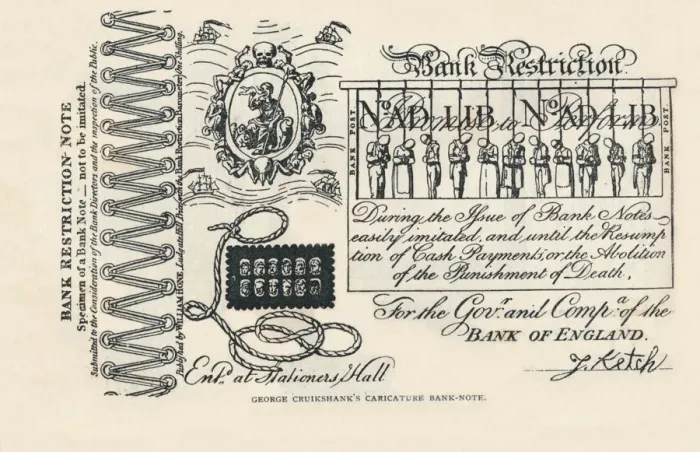 BANK RESTRICTION NOTE
Specimen of a Bank Note — not to be imitated.
Submitted to the Consideration of the Bank Directors and the inspection of the Public.
Published by WILLIAM HONE, Ludgate Hill Bank Restriction Barometer Shilling.
Bank Restriction.
BANK POST
Nº AD LIB Nº AD LIB
Promise to Perform
BANK POST
During the Issue of Bank Notes
easily imitated, and until the Resump
tion of Cash Payments, or the Abolition
of the Punishment of Death,
For the Govr. and Compa. of the
BANK OF ENGLAND.
J. Ketch
Entd. at Stationers Hall
GEORGE CRUIKSHANK'S CARICATURE BANK-NOTE.